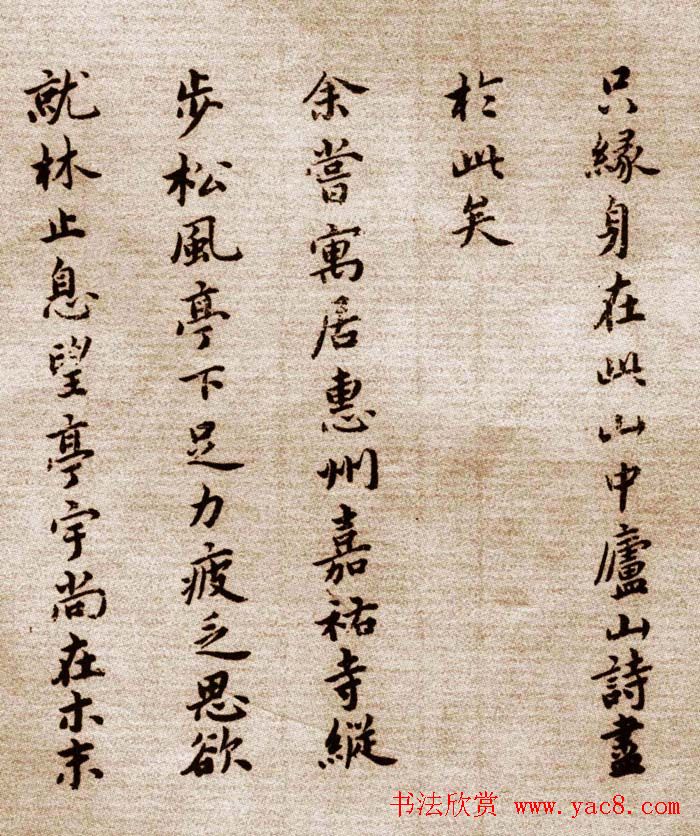 只緣身在此山中廬山詩盡
於此矣
余嘗寓居惠州嘉祐寺縱
步松風亭下足力疲乏思欲
就林止息望亭宇尚在木末
书法欣赏 www.yac8.com